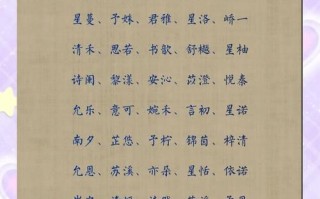 星蔓、于姝、君雅、星洛、峤一
清禾、思若、书歆、舒樾、星柚
诗阑、黎漾、安沁、苡澄、悦泰
允乐、意可、婉禾、言初、星诺
南夕、芷悠、于柠、锦茵、梓清
允恩、苏溪、亦朵、星恬、依诺